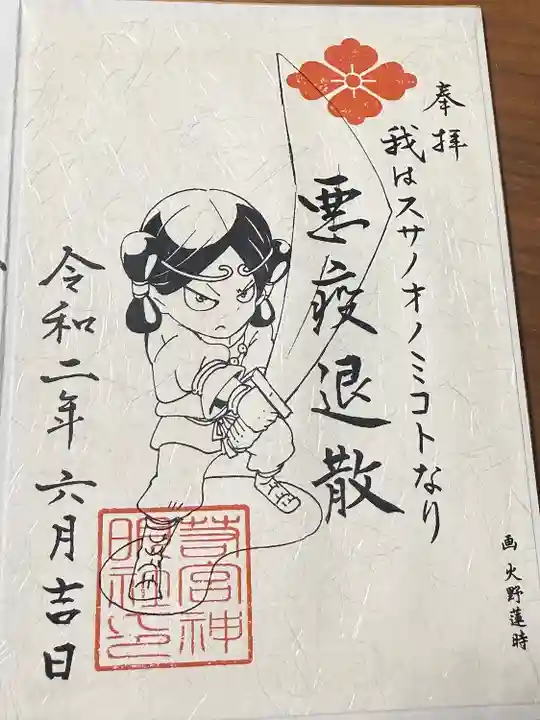 奉拝
我はスサノオノミコトなり
悪疫退散
令和二年六月吉日
画 火野蓮時
若宮神
明社之印